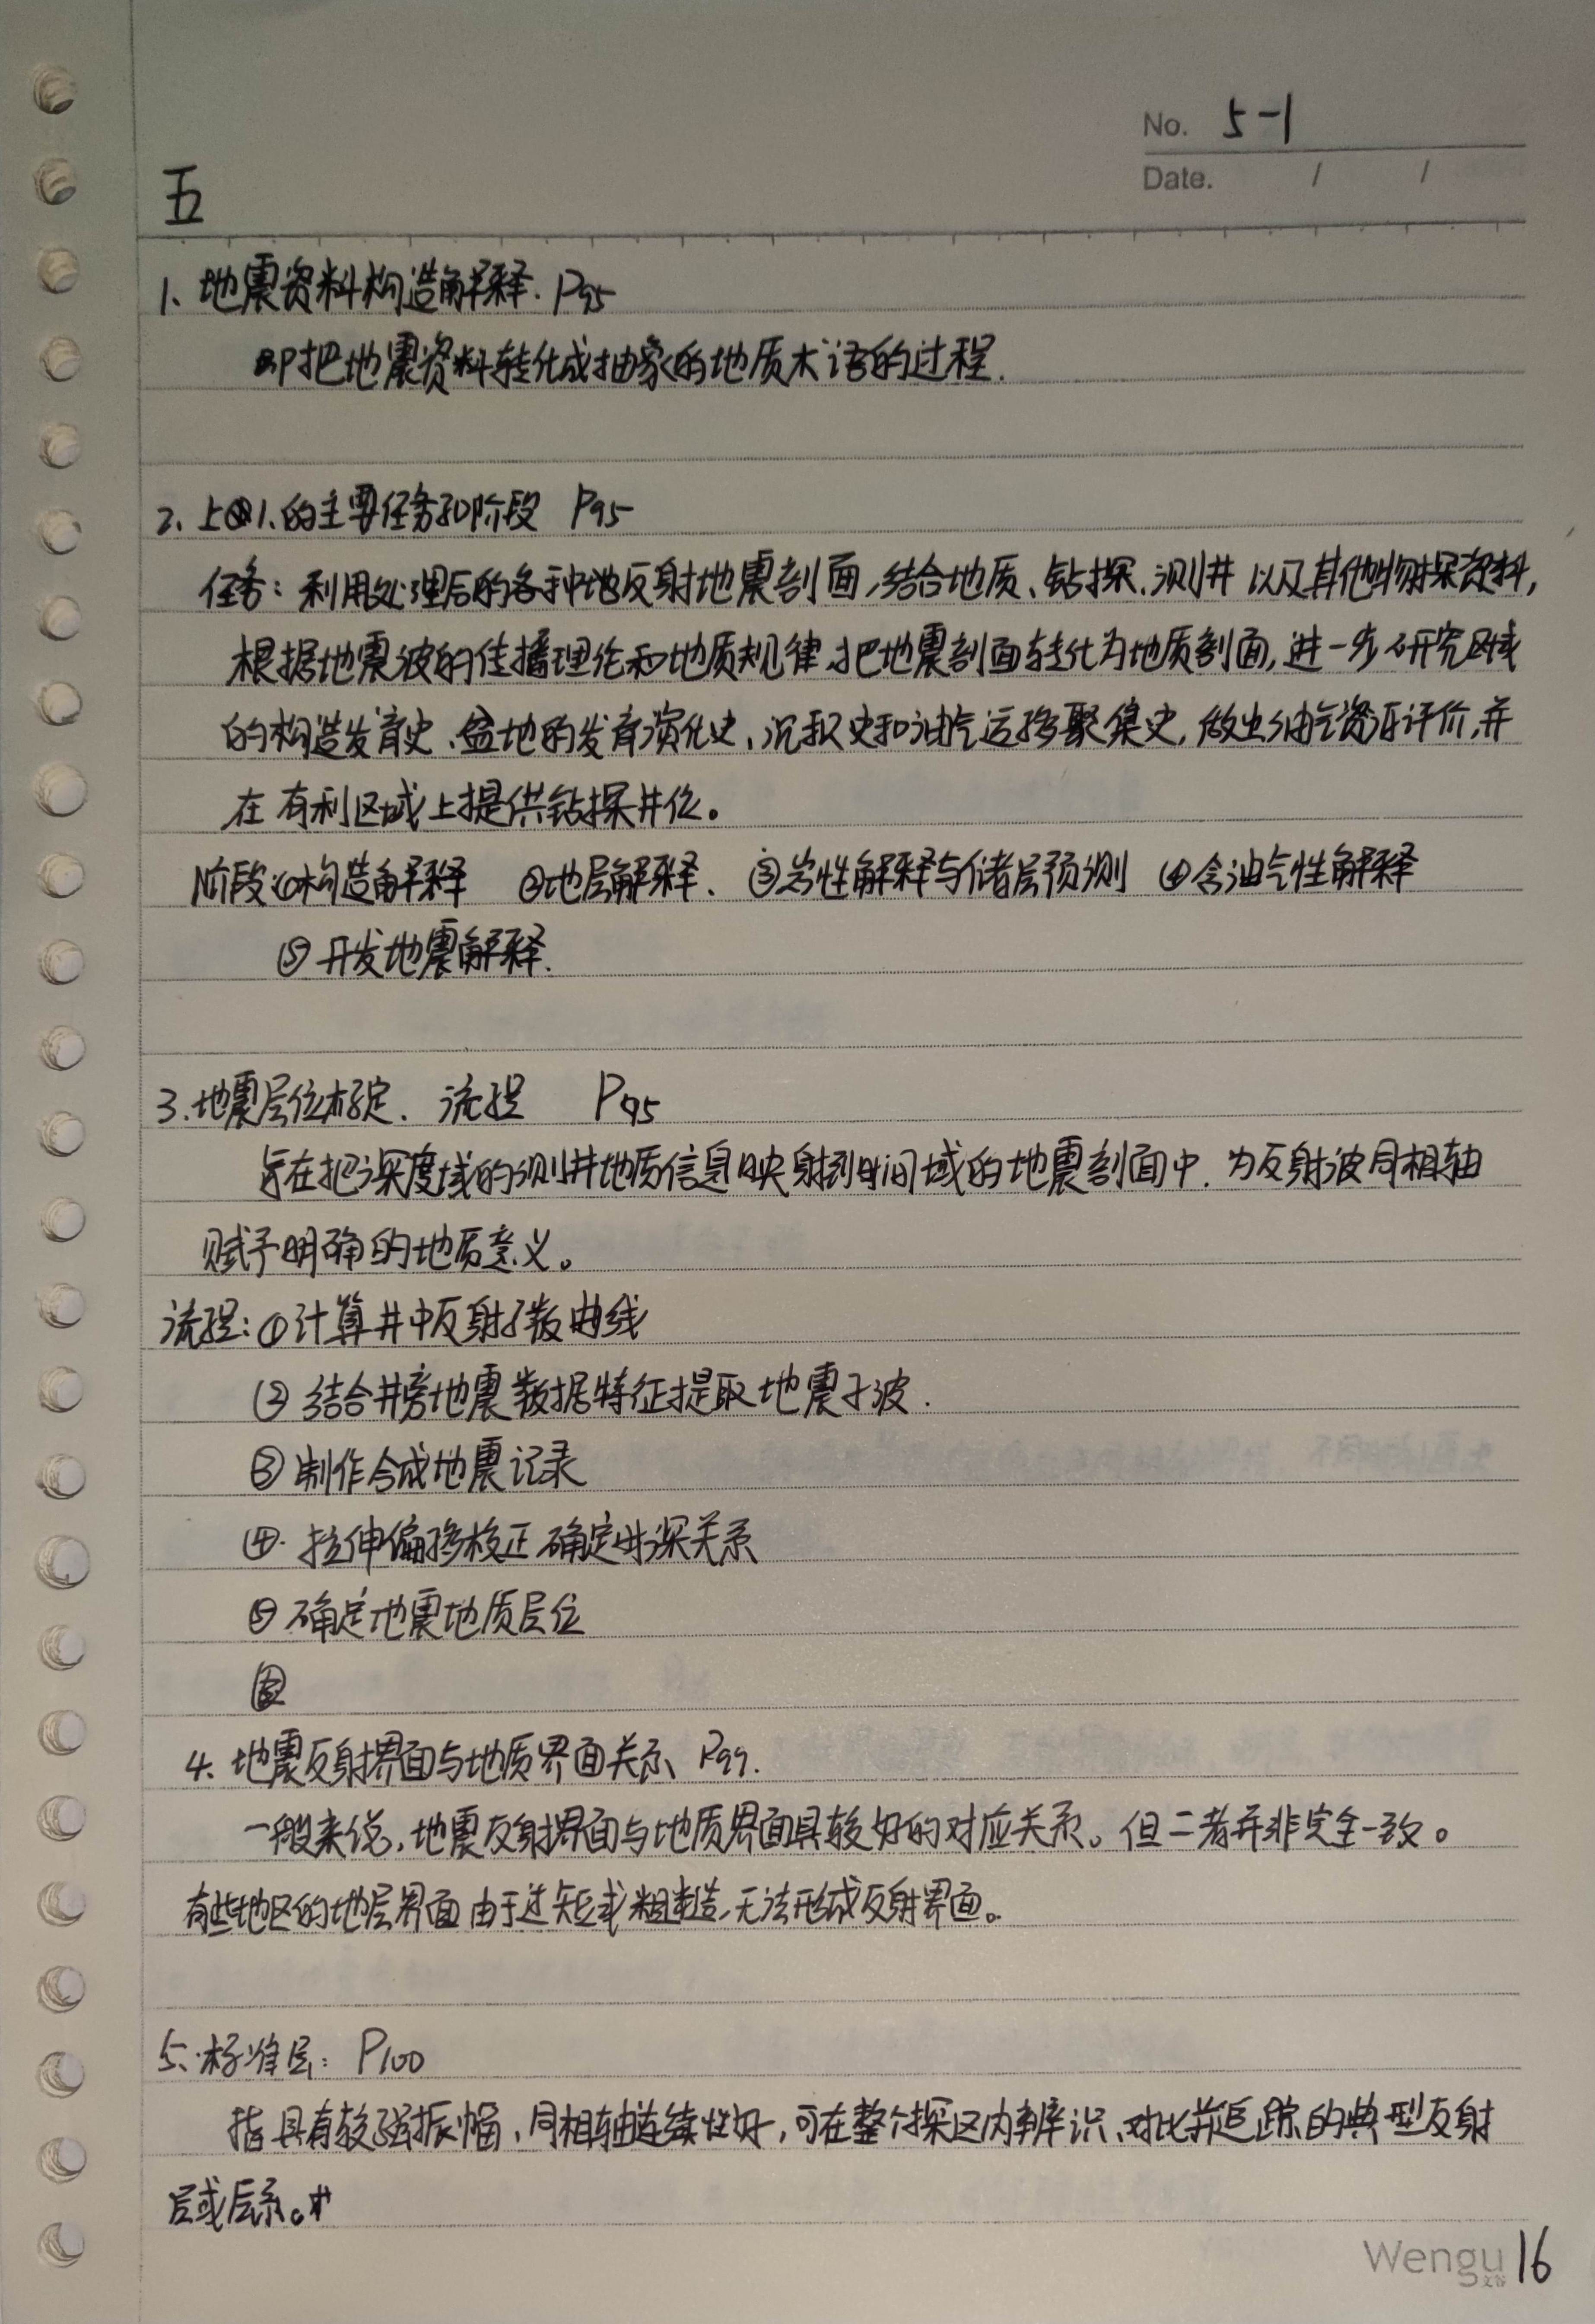 No. 5-1
Date. / /
五
1、地震资料构造解释. P95
即把地震资料转化成抽象的地质术语的过程.
2、上1、的主要任务和阶段 P95
任务：利用处理后的各种地反射地震剖面，结合地质、钻探、测井以及其他物探资料，
根据地震波的传播理论和地质规律，把地震剖面转化为地质剖面，进一步研究区域
的构造发育史、盆地的发育演化史、沉积史和油气运移聚集史，做出油气资源评价，并
在有利区域上提供钻探井位。
阶段：①构造解释 ②地层解释. ③岩性解释与储层预测 ④含油气性解释
⑤开发地震解释.
3.地震层位标定. 流程 P95
旨在把深度域的测井地质信息映射到时间域的地震剖面中. 为反射波同相轴
赋予明确的地质意义。
流程：①计算井中反射系数曲线
②结合井旁地震数据特征提取地震子波.
③制作合成地震记录
④. 拉伸偏移校正确定时深关系
⑤确定地震地质层位
4、地震反射界面与地质界面关系 P99.
一般来说，地震反射界面与地质界面具较好的对应关系。但二者并非完全一致。
有些地区的地层界面由于过短或粗糙，无法形成反射界面。
5、标准层：P100
指具有较强振幅、同相轴连续性好，可在整个探区内辨识、对比并追踪的典型反射
层或层系。
Wengu 16
文谷